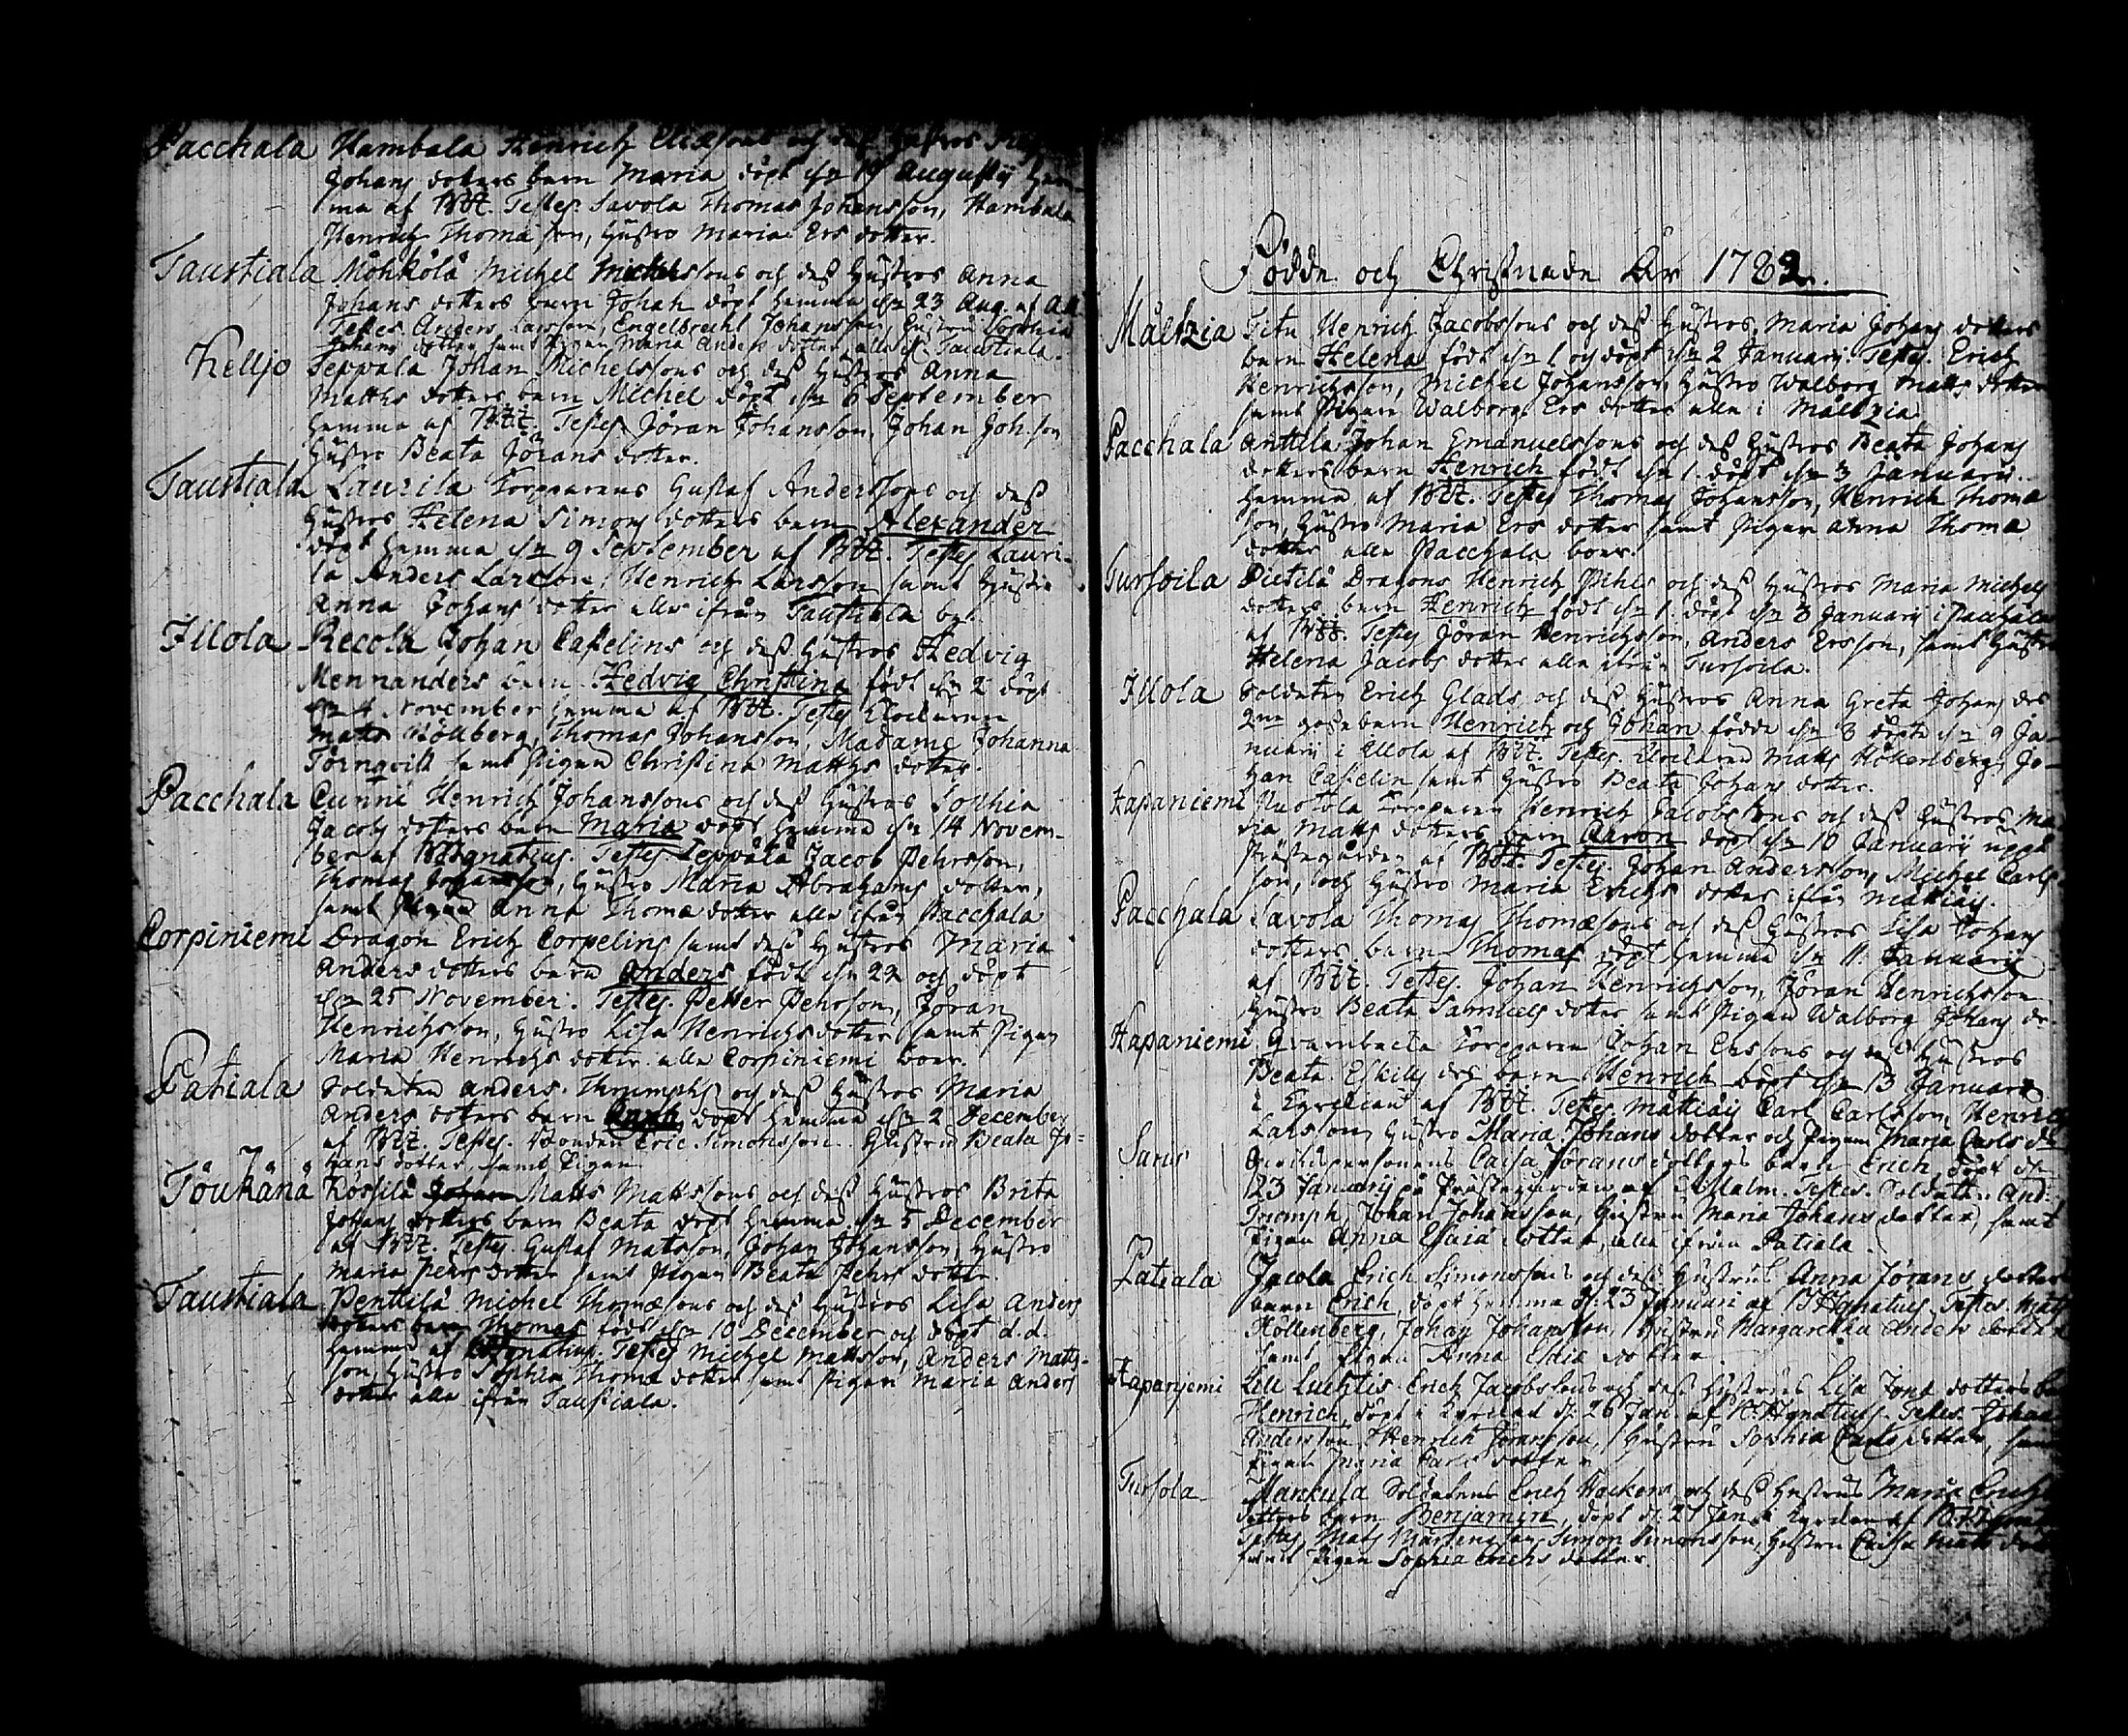 Pacchala Hambala Henrich och dess hustros
Johans dotters barn Maria döpt d. 19 Augusti hem-
ma af BHI. Testes. Savola Thomas Johansson, Hambala
Henrich Thomæ son, hustro Maria Ers dotter.
Taustiala Möhkölä Michel Michelssons och dess hustros Anna
Johans dotters barn Johan döpt hemma d. 23 Aug. af
Testes Anders Larsson, Engelbrecht Johansson, hustru Sophia
Johans dotter samt Pigan Maria Anders dotter alla if. Taustiala.
Kelljo Seppälä Johan Michelssons och dess hustros Anna
Matths dotters barn Michel döpt d. 6 September
hemma af BHI. Testes Jöran Johansson, Johan Joh. son
hustro Beata Jörans dotter.
Taustiala Laurila Torpparens Gustaf Anderssons och dess
hustros Helena Simons dotters barn Alexander
döpt hemma d. 9 September af BHI. Testes Lauri-
la Anders Larsson, Henrich Larsson samt hustro
Anna Johans dotter alla ifrån Taustiala by.
Illola Recola Johan Caselins och dess hustros Hedvig
Mennanders barn Hedvig Christina födt d. 2 döpt
d. 4 November hemma af BHI. Testes Klockaren
Matts Höllberg, Thomas Johansson, Madame Johanna
Törnqvist samt Pigan Christina Matths dotter.
Pacchala Cunni Henrich Johanssons och dess hustros Sophia
Jacobs dotters barn Maria döpt hemma d. 14 Novem-
ber af BHIgnatius. Testes Seppälä Jacob Pehrsson,
Thomas Johansson, hustro Maria Abrahams dotter,
samt Pigan Anna Thomæ dotter alla ifrån Pacchala
Corpiniemi Dragon Erich Corpelins samt dess hustros Maria
Anders dotters barn Anders födt d. 22 och döpt
d. 25 November. Testes. Petter Pehrsson, Jöran
Henrichsson, hustro Lisa Henrichs dotter samt Pigan
Maria Henrichs dotter alla Corpiniemi boer.
Patiala Soldaten Anders Thriumphs och dess hustros Maria
Anders dotters barn Anna döpt hemma d. 2 December
af BHI. Testes. Bonden Eric Simonsson. hustru Beata Jo-
hans dotter, samt Pigan
Töukänä Kossilä Johan Matts Mattssons och dess hustros Brita
Johans dotters barn Beata döpt hemma d. 5 December
af BHI. Testes. Gustaf Matsson, Johan Johansson, hustro
Maria Pehrs dotter samt Pigan Beata Pehrs dotter.
Taustiala Penttilä Michel Thomæsons och dess hustros Lisa Anders
dotters barn Thomas födt d. 10 December och döpt d.d.
hemma af BHIgnatius. Testes Michel Mattsson, Anders Matts-
son, hustro Sophia Thomæ dotter samt Pigan Maria Anders
dotter alla ifrån Taustiala.
Födde och Christnade År 1782.
Måltzia Titu Henrich Jacobssons och dess hustros Maria Johans dotters
barn Helena födt d. 1 och döpt d. 2 Januarii. Testes. Erich
Henrichsson, Michel Johansson, hustro Walborg Matts dotter
samt Pigan Walborg Ers dotter alla i Måltzia
Pacchala Anttila Johan Emanuelssons och dess hustros Beata Johans
dotters barn Henrich födt d. 1 döpt d. 3 Januarii.
hemma af BHI. Testes Thomas Johansson, Henrich Thomæ
son, hustro Maria Ers dotter samt Pigan Anna Thomæ
dotter alla Pacchala boer.
Tursoila Pietilä Dragons Henrich Pihls och dess hustros Maria Michels
dotters barn Henrich födt d. 1 döpt d. 3 Januarii i Pacchala
af BHI. Testes Jöran Henrichsson, Anders Ersson, samt hustro
Helena Jacobs dotter alla ifrån Tursoila.
Illola Soldaten Erich Glads och dess hustros Anna Greta Johans drs
2ne gossebarn Henrich och Johan födde d. 8 döpte d. 9 Ja-
nuarii i Illola af BHI. Testes. Klockaren Matts Höllenberg, Jo-
han Caselin samt hustro Beata Johans dotter.
Hapaniemi Torpparen Henrich Jacobssons och dess hustros Ma-
ria Matts dotters barn Aaron döpt d. 10 Januarii uppå
Prästegården af BHI. Testes. Johan Andersson, Michel Carls-
son, och hustro Maria Erichs dotter ifrån
Pacchala Savola Thomas Thomæsons och dess hustros Lisa Johans
dotters barn Thomas döpt hemma d. 11 Januarii
af BHI. Testes. Johan Henrichsson, Jöran Henrichsson
hustro Beata Samuels dotter samt Pigan Walborg Johans dr.
Hapaniemi Qvarnbacka Torpparen Johan Erssons och dess hustros
Beata Eskils drs barn Henrich döpt d. 13 Januarii
i Kyrckian af BHI. Testes Carl Carlsson, Henrich
Larsson, hustro Maria Johans dotter och Pigan Maria Carls dr
Sarus Caisa Jörans dotters barn Erich, döpt d.
23 Januarii på Prästegården af Malm. Testes. Soldaten And.
Triumph, Johan Johansson, hustru Maria Johans dotter, samt
Pigan Anna Esaiæ dotter, alla ifrån Patiala.
Patiala Jacola Erich Simonssons och dess hustrus Anna Jörans dotters
barn Erich, döpt hemma d. 23 Januari af BHIgnatius. Testes. Matts
Höllenberg, Johan Johansson, hustru Margaretha Anders dotter
samt Pigan Anna dotter.
Hapanjemi Erich Jacobssons och dess hustrus Lisa dotters barn
Henrich, döpt i Kyrckan d. 26 Jan. af Ignatius. Testes. Johan
Andersson, Henrich Jöransson, hustru Sophia Carls dotter, samt
Pigan Maria Carls dotter
Tursola Mankula Soldatens Erich och dess hustrus Maria Erichs
dotters barn Benjamin, döpt d. 27 Jan. i Kyrckan af
Testes Mats Simon Simonsson, hustru Caisa Matts
samt Pigan Sophia Erichs dotter.